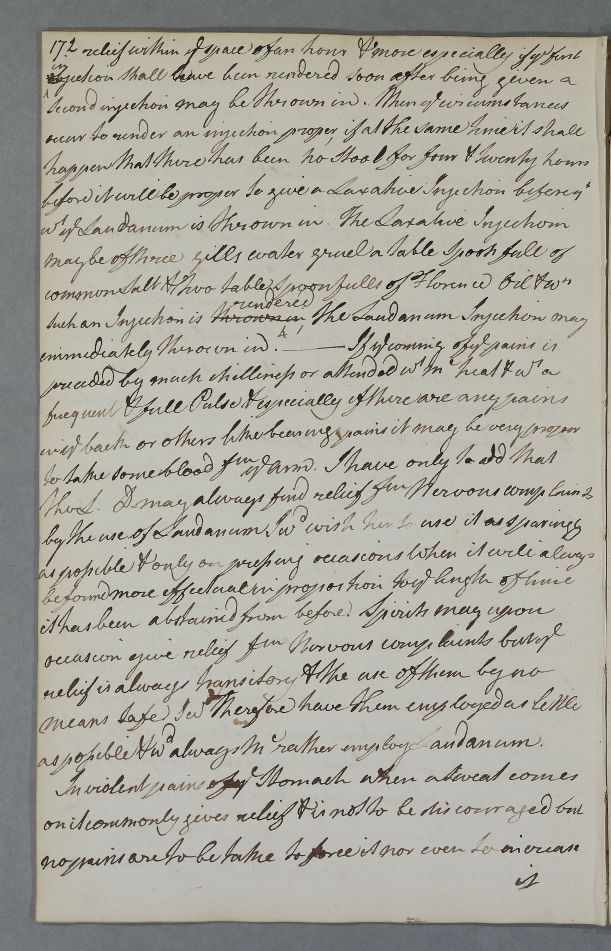 172 relief within ye space of an hour & more especially if ye first
injection shall have been rendered soon after being given a
second injection may be thrown in. When ye circumstances
occur to render an injection proper, if at the same time it shall
happen that there has been no stool for four & twenty hours
before it will be proper to give a Laxative Injection before yt
wt ye Laudanum is thrown in. The Laxative Injection
may be of three gills water gruel a table spoonfull of
common Salt & two table Spoonfulls of Florence Oil & wn
such an Injection is thrown in rendered, the Laudanum Injection may
immediately thrown in. — If ye coming of ye pains is
preceded by much chilliness or attended wt mc heat & wt a
frequent & full Pulse & especially if there are any pains
in ye back or others like bearing pains it may be very proper
to take some blood fm ye arm. I have only to add that
tho L. D may always find relief fm Nervous complaints
by the use of Laudanum I wd wish her to use it as sparingly
as possible & only on pressing occasions when it will always
be found more effectual in proportion to ye length of time
it has been abstained from before. Spirits may upon
occasion give relief fm Nervous complaints but ye
relief is always transitory & the use of them by no
means safe I wd therefore have them employed as little
as possible & wd always mc rather employ Laudanum.
In violent pains of ye Stomach when a Sweat comes
on it commonly gives relief & is not to be discouraged but
no pains are to be take to force it nor even to increase
it